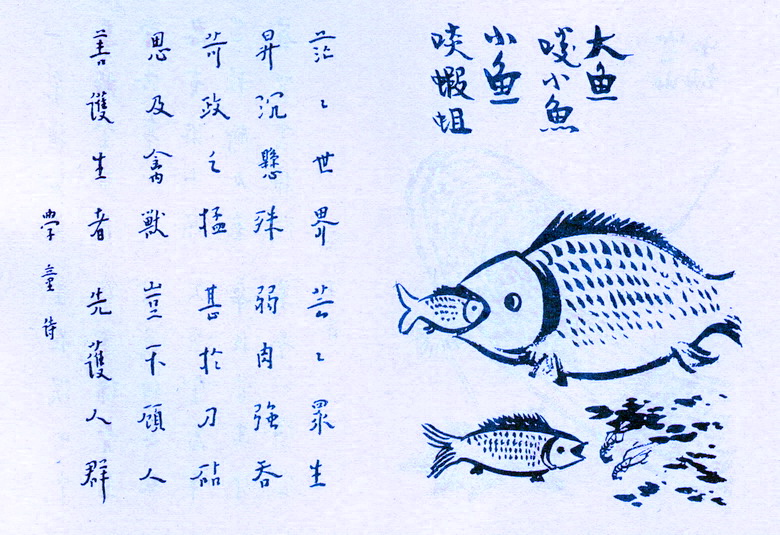 大鱼
啖小魚
小鱼
啖蝦蛆
茫々世界芸々眾生
昇沉懸殊弱肉強吞
苛政之猛甚於刀砧
恩及禽獸豈不顧人
善護生者先護人群
學童詩